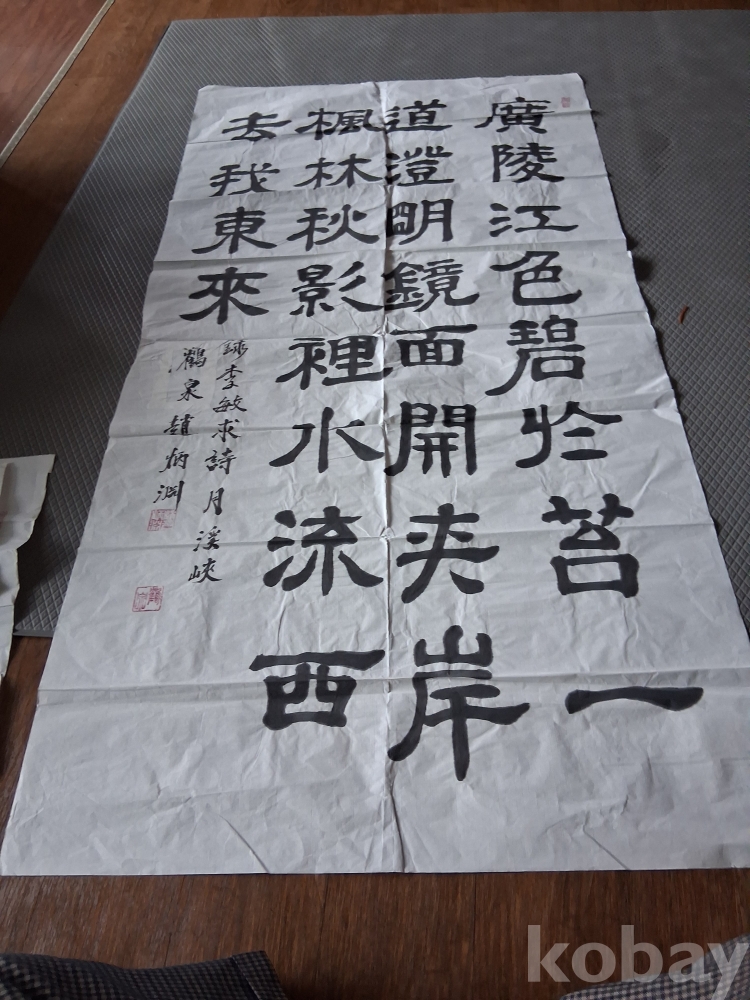 廣陵江色碧於苔一
道澄明鏡面開夾岸
楓林秋影裡水流西
去我東來
錄李敏求詩月溪峽
鶴泉趙炳淵
kobay